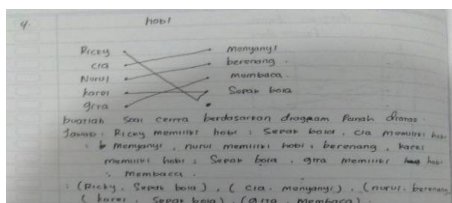 4. hobi
Ricky menyanyi
cia berenang.
Nurul membaca
karel Sepak bola
gita
buatlah soal cerita berdasarkan diagram Panah diatas
Jawab: Ricky memiliki hobi : Sepak bola, cia memiliki hobi
: menyanyi, nurul memiliki hobi : berenang, karel
memiliki hobi : Sepak bola, gita memiliki hobi
: membaca.
: (Ricky, Sepak bola), (cia, menyanyi), (nurul, berenang
(karel, Sepak bola), (gita, membaca)